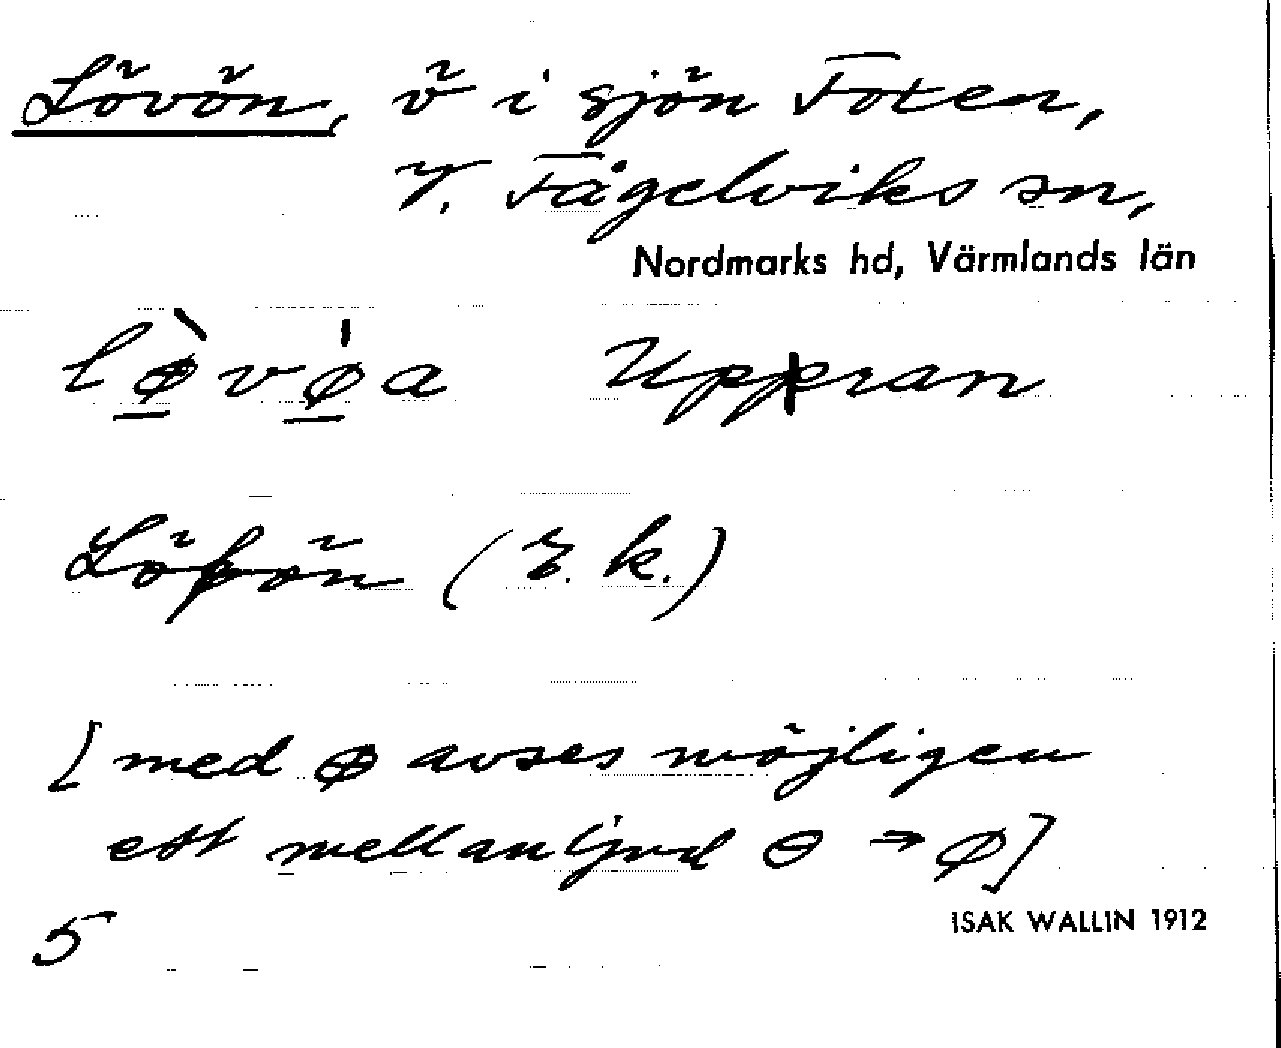 Lövön, ö i sjön Foxen,
V. Fågelviks sn,
Nordmarks hd, Värmlands län
lø̀vǿa Uppran
Löfön (E. k.)
[med ø avses möjligen
ett mellanljud ɵ → ø]
5
ISAK WALLIN 1912